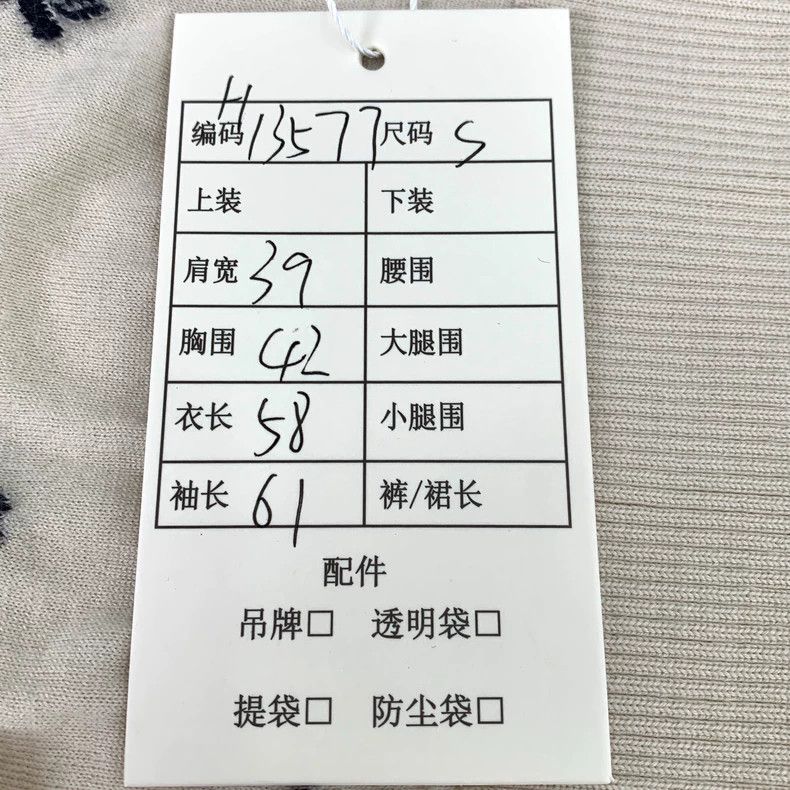 编码 H13577 尺码 S
上装 下装
肩宽 39 腰围
胸围 42 大腿围
衣长 58 小腿围
袖长 61 裤/裙长
配件
吊牌□ 透明袋□
提袋□ 防尘袋□